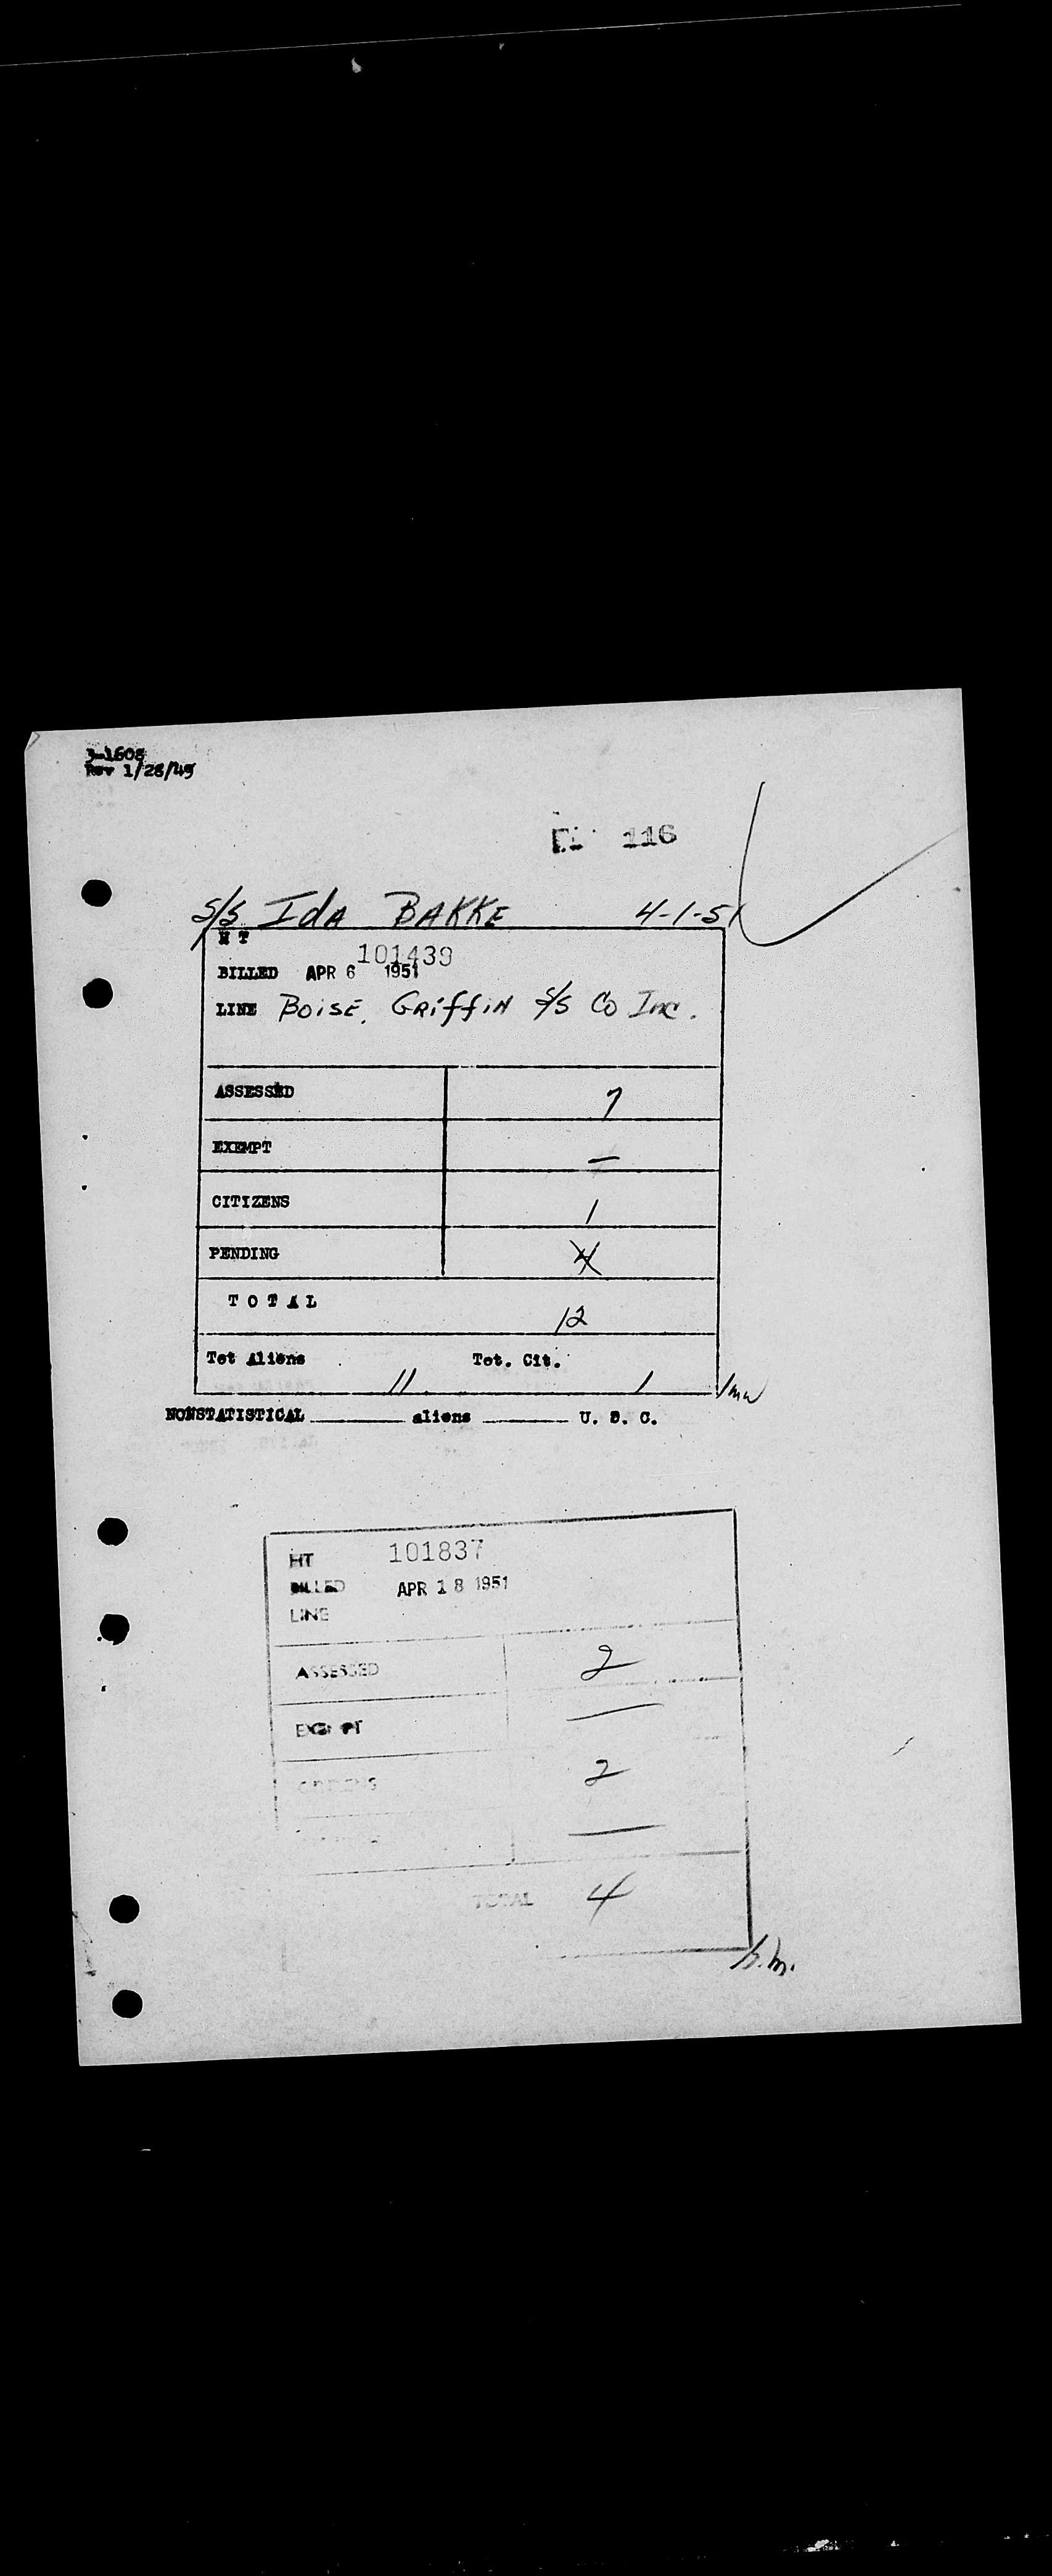 3-1608
Rev 1/28/49
116
S/S Ida BAKKE 4-1-51
H T 101439
BILLED APR 6 1951
LINE BOISE. GRiffiN S/S Co Inc.
ASSESSED 7
EXEMPT —
CITIZENS 1
PENDING 4
T O T A L 12
Tot Aliens 11 Tot. Cit. 1
NONSTATISTICAL ______ aliens ______ U. S. C.
HT 101837
BILLED APR 18 1951
LINE
ASSESSED 2
EXEMPT —
CITIZENS 2
—
TOTAL 4
h.m.